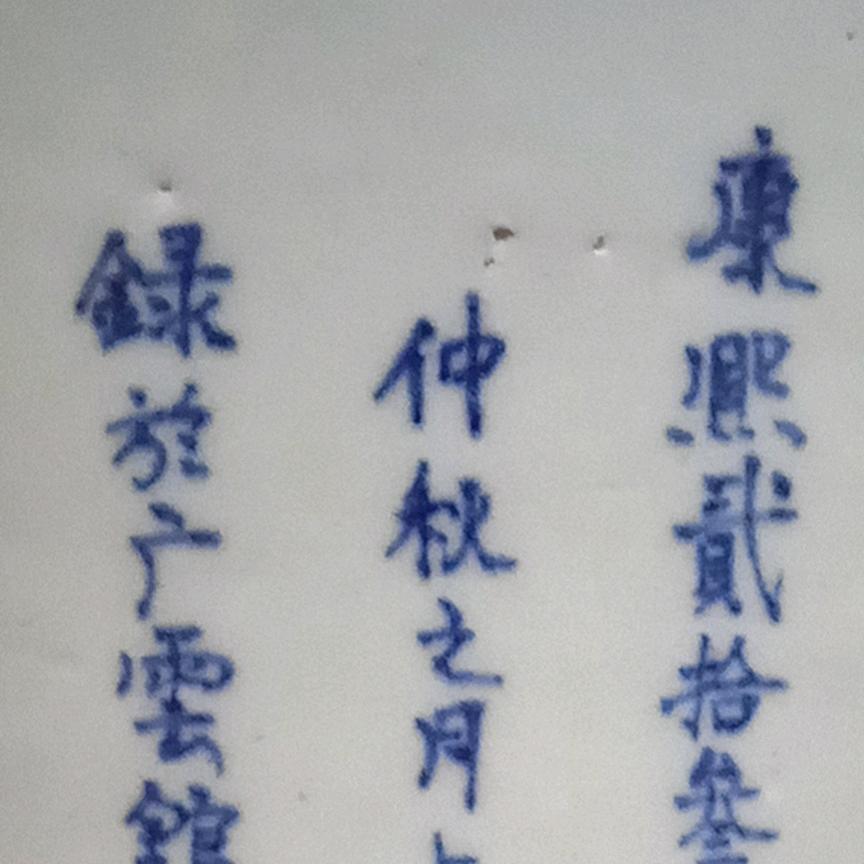 康熙貳拾叁
仲秋之月
錄於广雲館